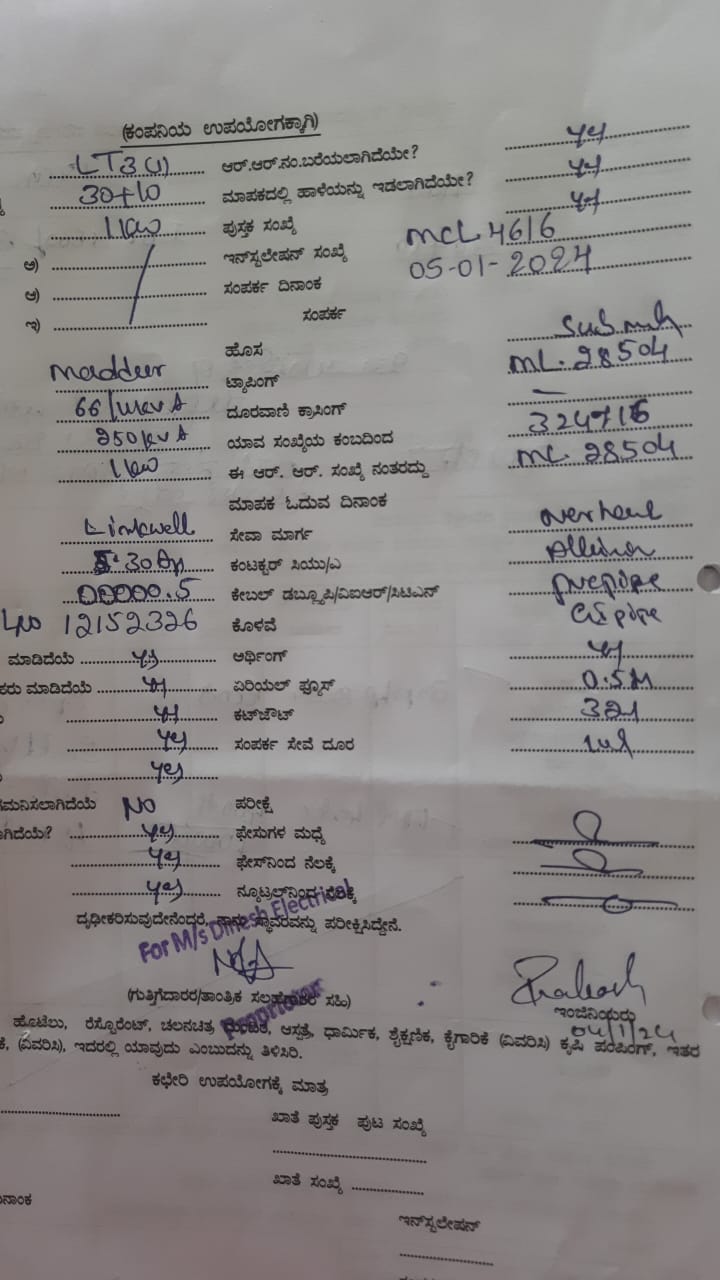 (ಕಂಪನಿಯ ಉಪಯೋಗಕ್ಕಾಗಿ)
LT3(1) ಆರ್.ಆರ್.ನಂ.ಬರೆಯಲಾಗಿದೆಯೇ? yes
30+10 ಮಾಪಕದಲ್ಲಿ ಹಾಳೆಯನ್ನು ಇಡಲಾಗಿದೆಯೇ? yes
1 kw ಪುಸ್ತಕ ಸಂಖ್ಯೆ yes
ಅ) ಇನ್‌ಸ್ಟಲೇಷನ್ ಸಂಖ್ಯೆ MCL 4616
ಆ) ಸಂಪರ್ಕ ದಿನಾಂಕ 05-01-2024
ಇ) ಸಂಪರ್ಕ
ಹೊಸ
Maddur ಟ್ಯಾಪಿಂಗ್ ML. 28504
66/11KV ದೂರವಾಣಿ ಕ್ರಾಸಿಂಗ್ —
250 KVA ಯಾವ ಸಂಖ್ಯೆಯ ಕಂಬದಿಂದ
1 kw ಈ ಆರ್. ಆರ್. ಸಂಖ್ಯೆ ನಂತರದ್ದು ML. 28504
ಮಾಪಕ ಓದುವ ದಿನಾಂಕ
Linkwell ಸೇವಾ ಮಾರ್ಗ overhead
5-30 ಕಂಟಕ್ಟರ್ ಸಿಯು/ಎ
00000.5 ಕೇಬಲ್ ಡಬ್ಲ್ಯೂಪಿ/ವಿಐಆರ್/ಸಿಟಿಎಸ್
12152326 ಕೊಳವೆ GI pipe
ಮಾಡಿದೆಯೆ yes ಅರ್ಥಿಂಗ್ yes
ಕರು ಮಾಡಿದೆಯೆ yes ಏರಿಯಲ್ ಫ್ಯೂಸ್ 0.5M
yes ಕಟ್‌ಔಟ್ 32A
yes ಸಂಪರ್ಕ ಸೇವೆ ದೂರ
yes
ಗಮನಿಸಲಾಗಿದೆಯೆ NO ಪರೀಕ್ಷೆ
ಾಗಿದೆಯೆ? yes ಫೇಸುಗಳ ಮಧ್ಯೆ
yes ಫೇಸ್‌ನಿಂದ ನೆಲಕ್ಕೆ
yes ನ್ಯೂಟ್ರಲ್‌ನಿಂದ ನೆಲಕ್ಕೆ
ದೃಢೀಕರಿಸುವುದೇನೆಂದರೆ, ನಾನು ಸ್ಥಾವರವನ್ನು ಪರೀಕ್ಷಿಸಿದ್ದೇನೆ.
For M/s Dinesh Electrical
Proprietor
(ಗುತ್ತಿಗೆದಾರರ/ತಾಂತ್ರಿಕ ಸಲಹೆಗಾರರ ಸಹಿ) ಇಂಜಿನಿಯರು
04/1/24
ಹೊಟೆಲು, ರೆಸ್ಟೊರೆಂಟ್, ಚಲನಚಿತ್ರ ಮಂದಿರ, ಆಸ್ಪತ್ರೆ, ಧಾರ್ಮಿಕ, ಶೈಕ್ಷಣಿಕ, ಕೈಗಾರಿಕೆ (ವಿವರಿಸಿ) ಕೃಷಿ ಪಂಪಿಂಗ್, ಇತರ
ಕೆ, (ವಿವರಿಸಿ), ಇದರಲ್ಲಿ ಯಾವುದು ಎಂಬುದನ್ನು ತಿಳಿಸಿರಿ.
ಕಛೇರಿ ಉಪಯೋಗಕ್ಕೆ ಮಾತ್ರ
ಖಾತೆ ಪುಸ್ತಕ ಪುಟ ಸಂಖ್ಯೆ
ಖಾತೆ ಸಂಖ್ಯೆ
ನಾಂಕ
ಇನ್‌ಸ್ಟಲೇಷನ್